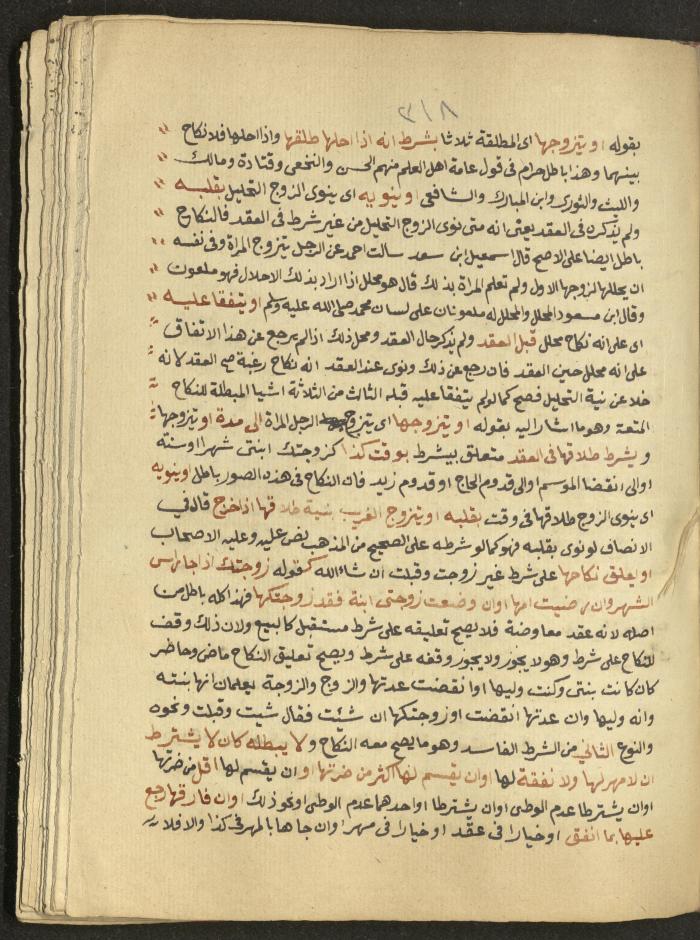 ٣١٨
بقوله او يتزوجها اى المطلقة ثلاثا بشرط انه اذا احلها طلقها واذا احلها فلا نكاح
بينهما وهذا باطل حرام فى قول عامة اهل العلم منهم الحسن والنخعى وقتادة ومالك
والليث والثورى وابن المبارك والشافعى او ينويه اى ينوى الزوج التحليل بقلبه
ولم يذكره فى العقد يعنى انه متى نوى الزوج التحليل من غير شرط فى العقد فالنكاح
باطل ايضا على الاصح قال اسمعيل ابن سعد سالت احمد عن الرجل يتزوج المراة وفى نفسه
ان يحللها لزوجها الاول ولم تعلم المراة بذلك قال هو محلل اذا اراد بذلك الاحلال فهو ملعون
وقال ابن مسعود المحلل والمحلل له ملعونان على لسان محمد صلى الله عليه وسلم او يتفقا عليه
اى على انه نكاح محلل قبل العقد ولم يذكر حال العقد ومحل ذلك اذا لم يرجع عن هذا الاتفاق
على انه محلل حين العقد فان رجع عن ذلك ونوى عند العقد انه نكاح رغبة صح العقد لانه
خلا عن نية التحليل فصح كما لو لم يتفقا عليه قبله الثالث من الثلاثة اشيا المبطلة للنكاح
المتعة وهو ما اشار اليه بقوله او يتزوجها اى يتزوج الرجل المراة الى مدة او يتزوجها
ويشرط طلاقها فى العقد متعلق بيشرط بوقت كذا كزوجتك ابنتى شهرا او سنة
او الى انقضا الموسم او الى قدوم الحاج او قدوم زيد فان النكاح فى هذه الصور باطل او ينويه
اى ينوى الزوج طلاقها فى وقت بقلبه او يتزوج الغريب بنية طلاقها اذا خرج قال فى
الانصاف لو نوى بقلبه فهو كما لو شرطه على الصحيح من المذهب نص عليه وعليه الاصحاب
او يعلق نكاحها على شرط غير زوجت وقبلت ان شاء الله كقوله زوجتك اذا جا راس
الشهر وان رضيت امها او ان وضعت زوجتى ابنة فقد زوجتكها فهذا كله باطل من
اصله لانه عقد معاوضة فلا يصح تعليقه على شرط مستقبل كالبيع ولان ذلك وقف
للنكاح على شرط وهو لا يجوز ولا يجوز وقفه على شرط ويصح تعليق النكاح ماض وحاضر
كان كانت بنتى وكنت وليها او انقضت عدتها والزوج والزوجة يعلمان انها بنته
وانه وليها وان عدتها انقضت او زوجتكها ان شئت فقال شيت وقبلت ونحوه
والنوع الثانى من الشرط الفاسد وهو ما يصح معه النكاح ولا يبطله كان لا يشترط
ان لا مهر لها ولا نفقة لها او ان يقسم لها اكثر من ضرتها او ان يقسم لها اقل من ضرتها
او ان يشترطا عدم الوطى او ان يشترطا او احدهما عدم الوطى او نحو ذلك او ان فارقها رجع
عليها بما انفق او خيارا فى عقد او خيارا فى مهر او ان جاها بالمهر فى كذا والا فلا